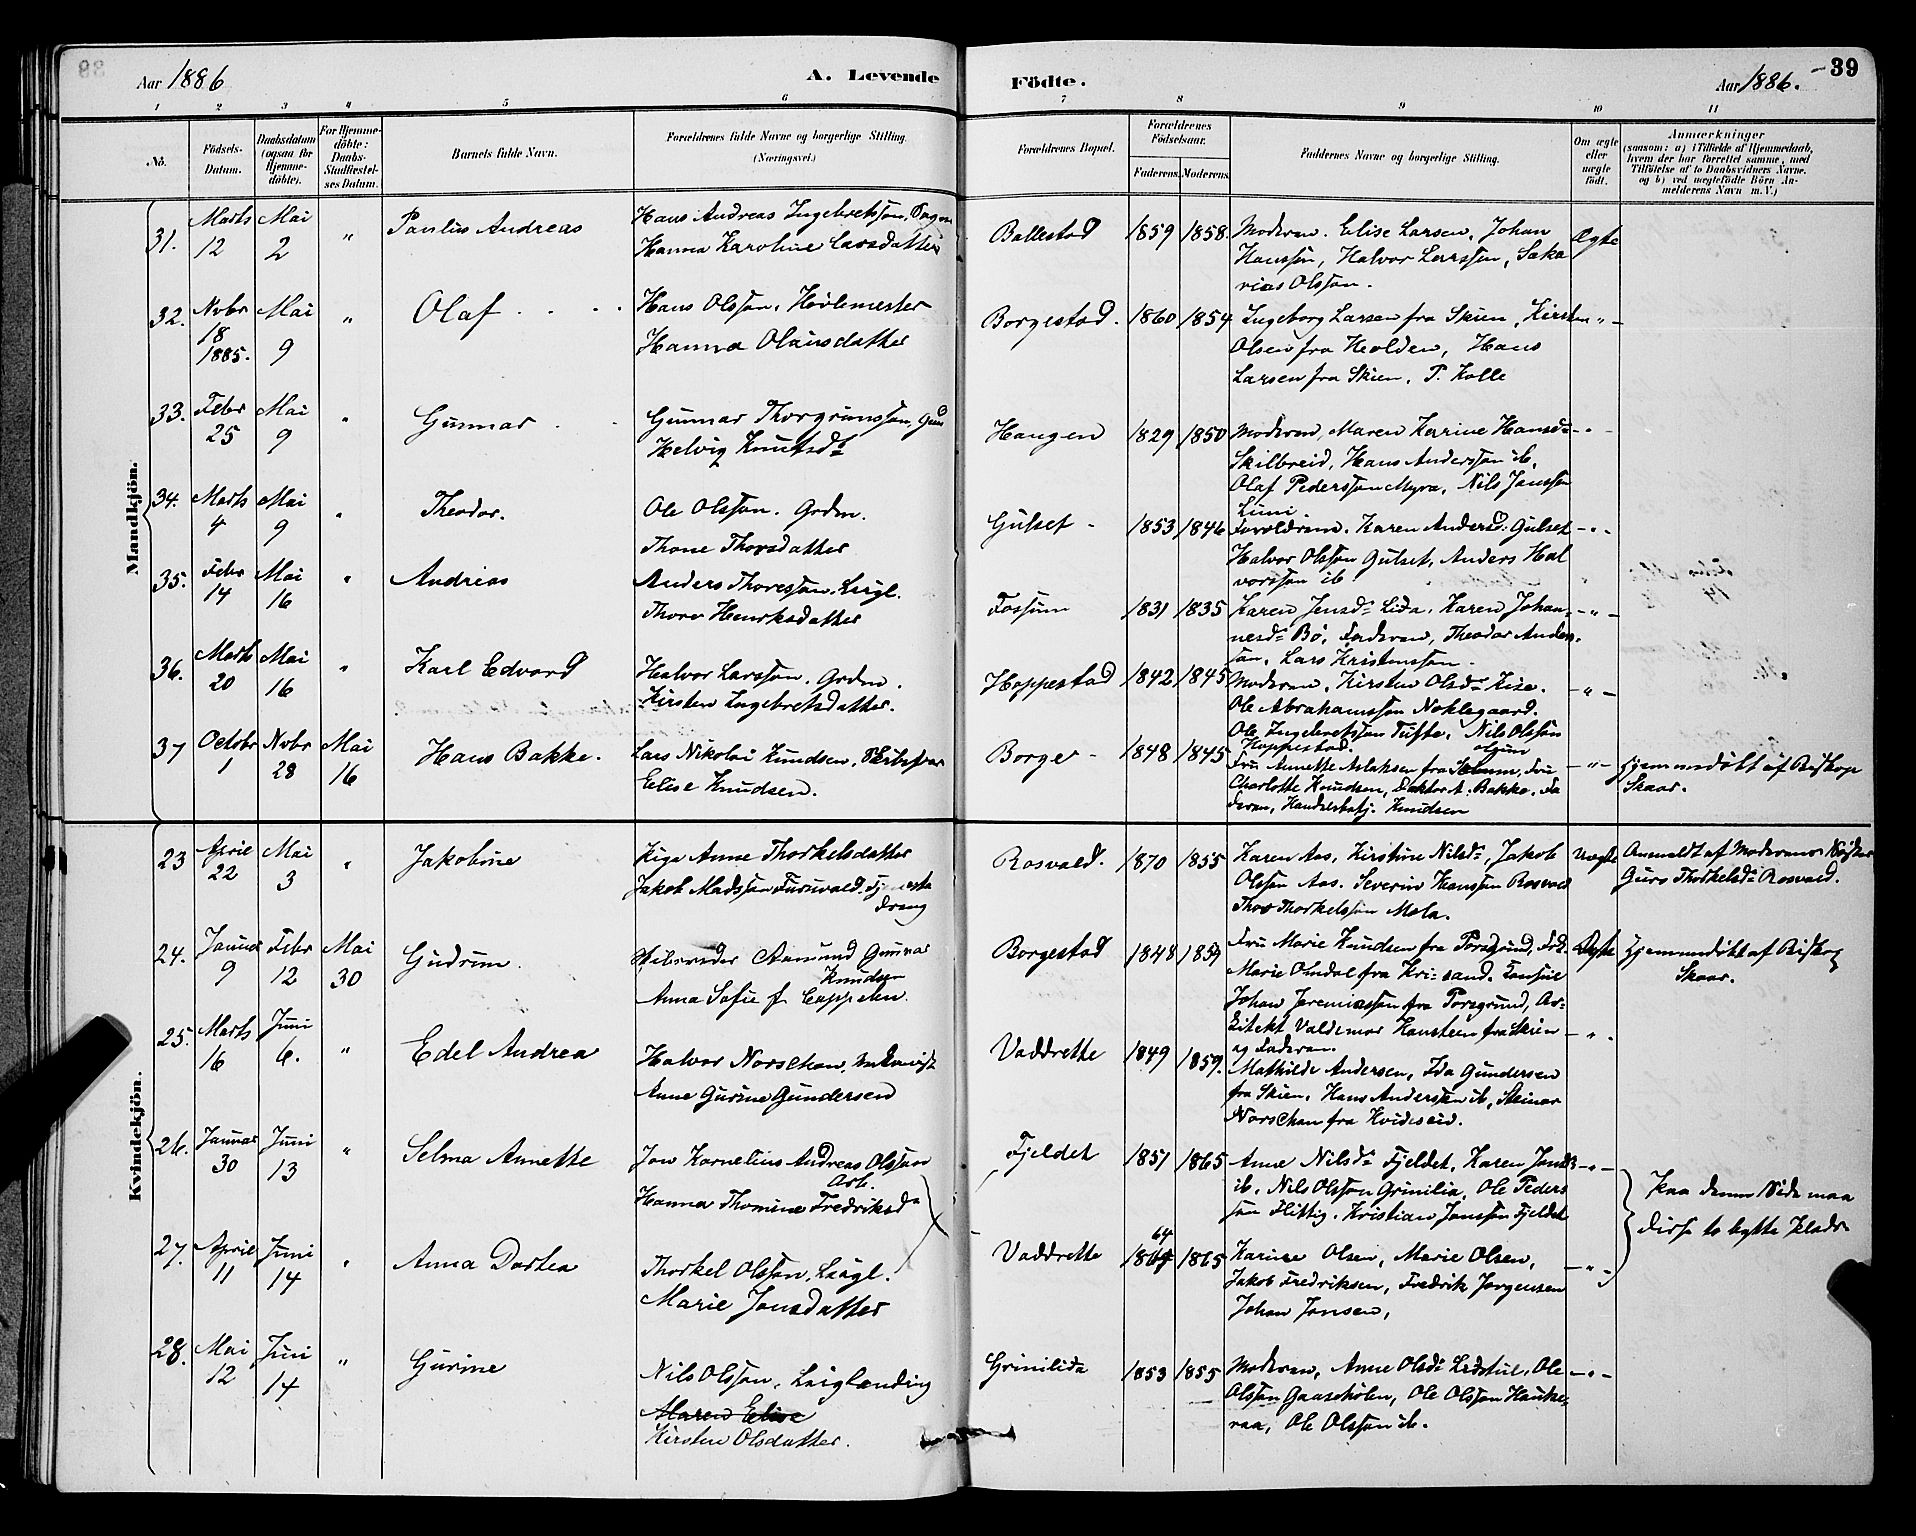 Aar 1886
A. Levende
Födte.
Aar 1886.
39
1 2 3 4 5 6 7 8 9 10 11
No.
Födsels-Datum.
Daabsdatum (ogsaa for Hjemmedöbte).
For Hjemmedöbte: Daabs-Stadfæstelses Datum.
Barnets fulde Navn.
Forældrenes fulde Navne og borgerlige Stilling. (Næringsvei.)
Forældrenes Bopæl.
Forældrenes Födselsaar. Faderens. Moderens.
Faddernes Navne og borgerlige Stilling.
Om ægte eller uægte födt.
Anmærkninger (saasom: a) i Tilfælde af Hjemmedaab, hvem der har forrettet samme, med Tilföielse af to Daabsvidners Navne, og b) ved uægtefödte Börn Anmelderens Navn m. V.)
Mandkjön.
31. Marts 12 Mai 2 " Paulus Andreas
Hans Andreas Ingebretssøn,
Hanna Karoline Larsdatter
Ballestad 1859 1858. Moderen. Elise Larsen, Johan
Hanssøn, Halvor Larssøn, Saka
rias Olssøn.
Ægte
32. Novbr 18 1885. Mai 9 " Olaf
Hans Olssøn, Høvlemester
Hanna Olausdatter
Borgestad. 1860 1854 Ingeborg Larsen fra Skien, Kirsten
Olsen fra Heolden, Hans
Larsen fra Skien, P. Kolle
- " -
33. Febr 25 Mai 9 " Gunnar
Gunnar Thorgrimssøn,
Helvig Knutsdr
Haugen 1829 1850 Moderen, Maren Karine Hansdr
Skilbreid, Hans Anderssøn ib,
Olaf Pederssøn Myra, Nils Janssøn
Lumi
- " -
34. Marts 4 Mai 9 " Theodor.
Ole Olssøn. Grdm.
Thone Thorsdatter
Gulset - 1853 1846 Forældrene. Karen Andersd: Gulset
Halvor Olssøn Gulset, Anders Hal
vorssøn ib
- " -
35. Febr 14 Mai 16 " Andreas
Anders Thoressøn.
Thore Henriksdatter
Fossum 1831 1835 Karen Jensdr Lida, Karen Johan-
nesdr Bø, Faderen, Theodor Anders-
søn, Lars Kristenssøn.
- " -
36. Marts 20 Mai 16 " Karl Edvard
Halvor Larssøn. Grdm.
Kirsten Ingebretsdatter.
Hoppestad 1842 1845 Moderen, Kirsten Olsdr Kise.
Ole Abrahamssøn Neklegaard.
Ole Ingebretssøn Tufte, Nils Olssøn
Hoppestad.
- " -
37 Octobr 1 Novbr 28 Mai 16 Hans Bakke.
Lars Nikolai Knudsen,
Elise Knudsen.
Borge - 1848 1845 Fru Annette Aslaksen fra Solum, Fru
Charlotte Knudsen, Doktor A. Bakke, Fa
deren, Handelsbetj. Knudsen
- " -
Hjemmedøbt af Biskop
Skaar.
Kvindekjön.
23 April 22 Mai 3 " Jakobine
Pige Anne Thorkelsdatter
Jakob Madssøn Furuvald,
dreng
Rosvald. 1870 1855 Karen Aas, Kirstine Nilsdr, Jakob
Olssøn Aas. Severin Hanssøn Rosvald
Thor Thorkelssøn Mæla.
Uægte
Anmeldt af Moderens Søster
Guro Thorkelsdr Rosvald.
24. Januar 9 Febr 12 Mai 30 Gudrun.
Aamund Gunnar
Knudsen
Anna Sofie f. Cappelen.
Borgestad 1848 1859 Fru Marie Knudsen fra Porsgrund, Frk.
Marie Omdal fra Kri-sand. Konsul
Johan Jeremiassøn fra Porsgrund, Ar-
kitekt Valdemar Hansteen fra Skien
og Faderen.
Ægte
Hjemmedøbt af Biskop
Skaar.
25. Marts 16 Juni 6. " Edel Andrea
Halvor Norschan,
Anne Gurine Gundersen
Vaddrette 1849 1859. Mathilde Andersen, Ida Gundersen
fra Skien, Hans Anderssen ib, Steinar
Norschan fra Kvideseid.
- " .
26. Januar 30 Juni 13 " Selma Annette
Jon Kornelius Andreas Olssøn
Arb.
Hanna Thomine Fredriksda
Fjeldet 1857 1865 Anne Nilsdr Fjeldet, Karen Jonsdr
ib, Nils Olssøn Grinilia, Ole Peders
søn Flittig, Kristian Jonssøn Fjeldet
- " -
Paa denne Side maa
disse to bytte Plads
27. April 11 Juni 14 " Anna Dortea
Thorkel Olssøn,
Marie Jonsdatter
Vaddrette 64 1865 Karine Olsen, Marie Olsen,
Jakob Fredriksen, Fredrik Jørgensen
Johan Jonsen,
- " -
28. Mai 12 Juni 14 " Gurine
Nils Olssøn, Leiglænding
Maren Elise
Kirsten Olsdatter.
Grinilida 1853 1855 Moderen, Anne Olsdr Ledstul, Ole
Olssøn Gaaseholen, Ole Olssøn Hauke-
raa, Ole Olssøn ib.
- " -